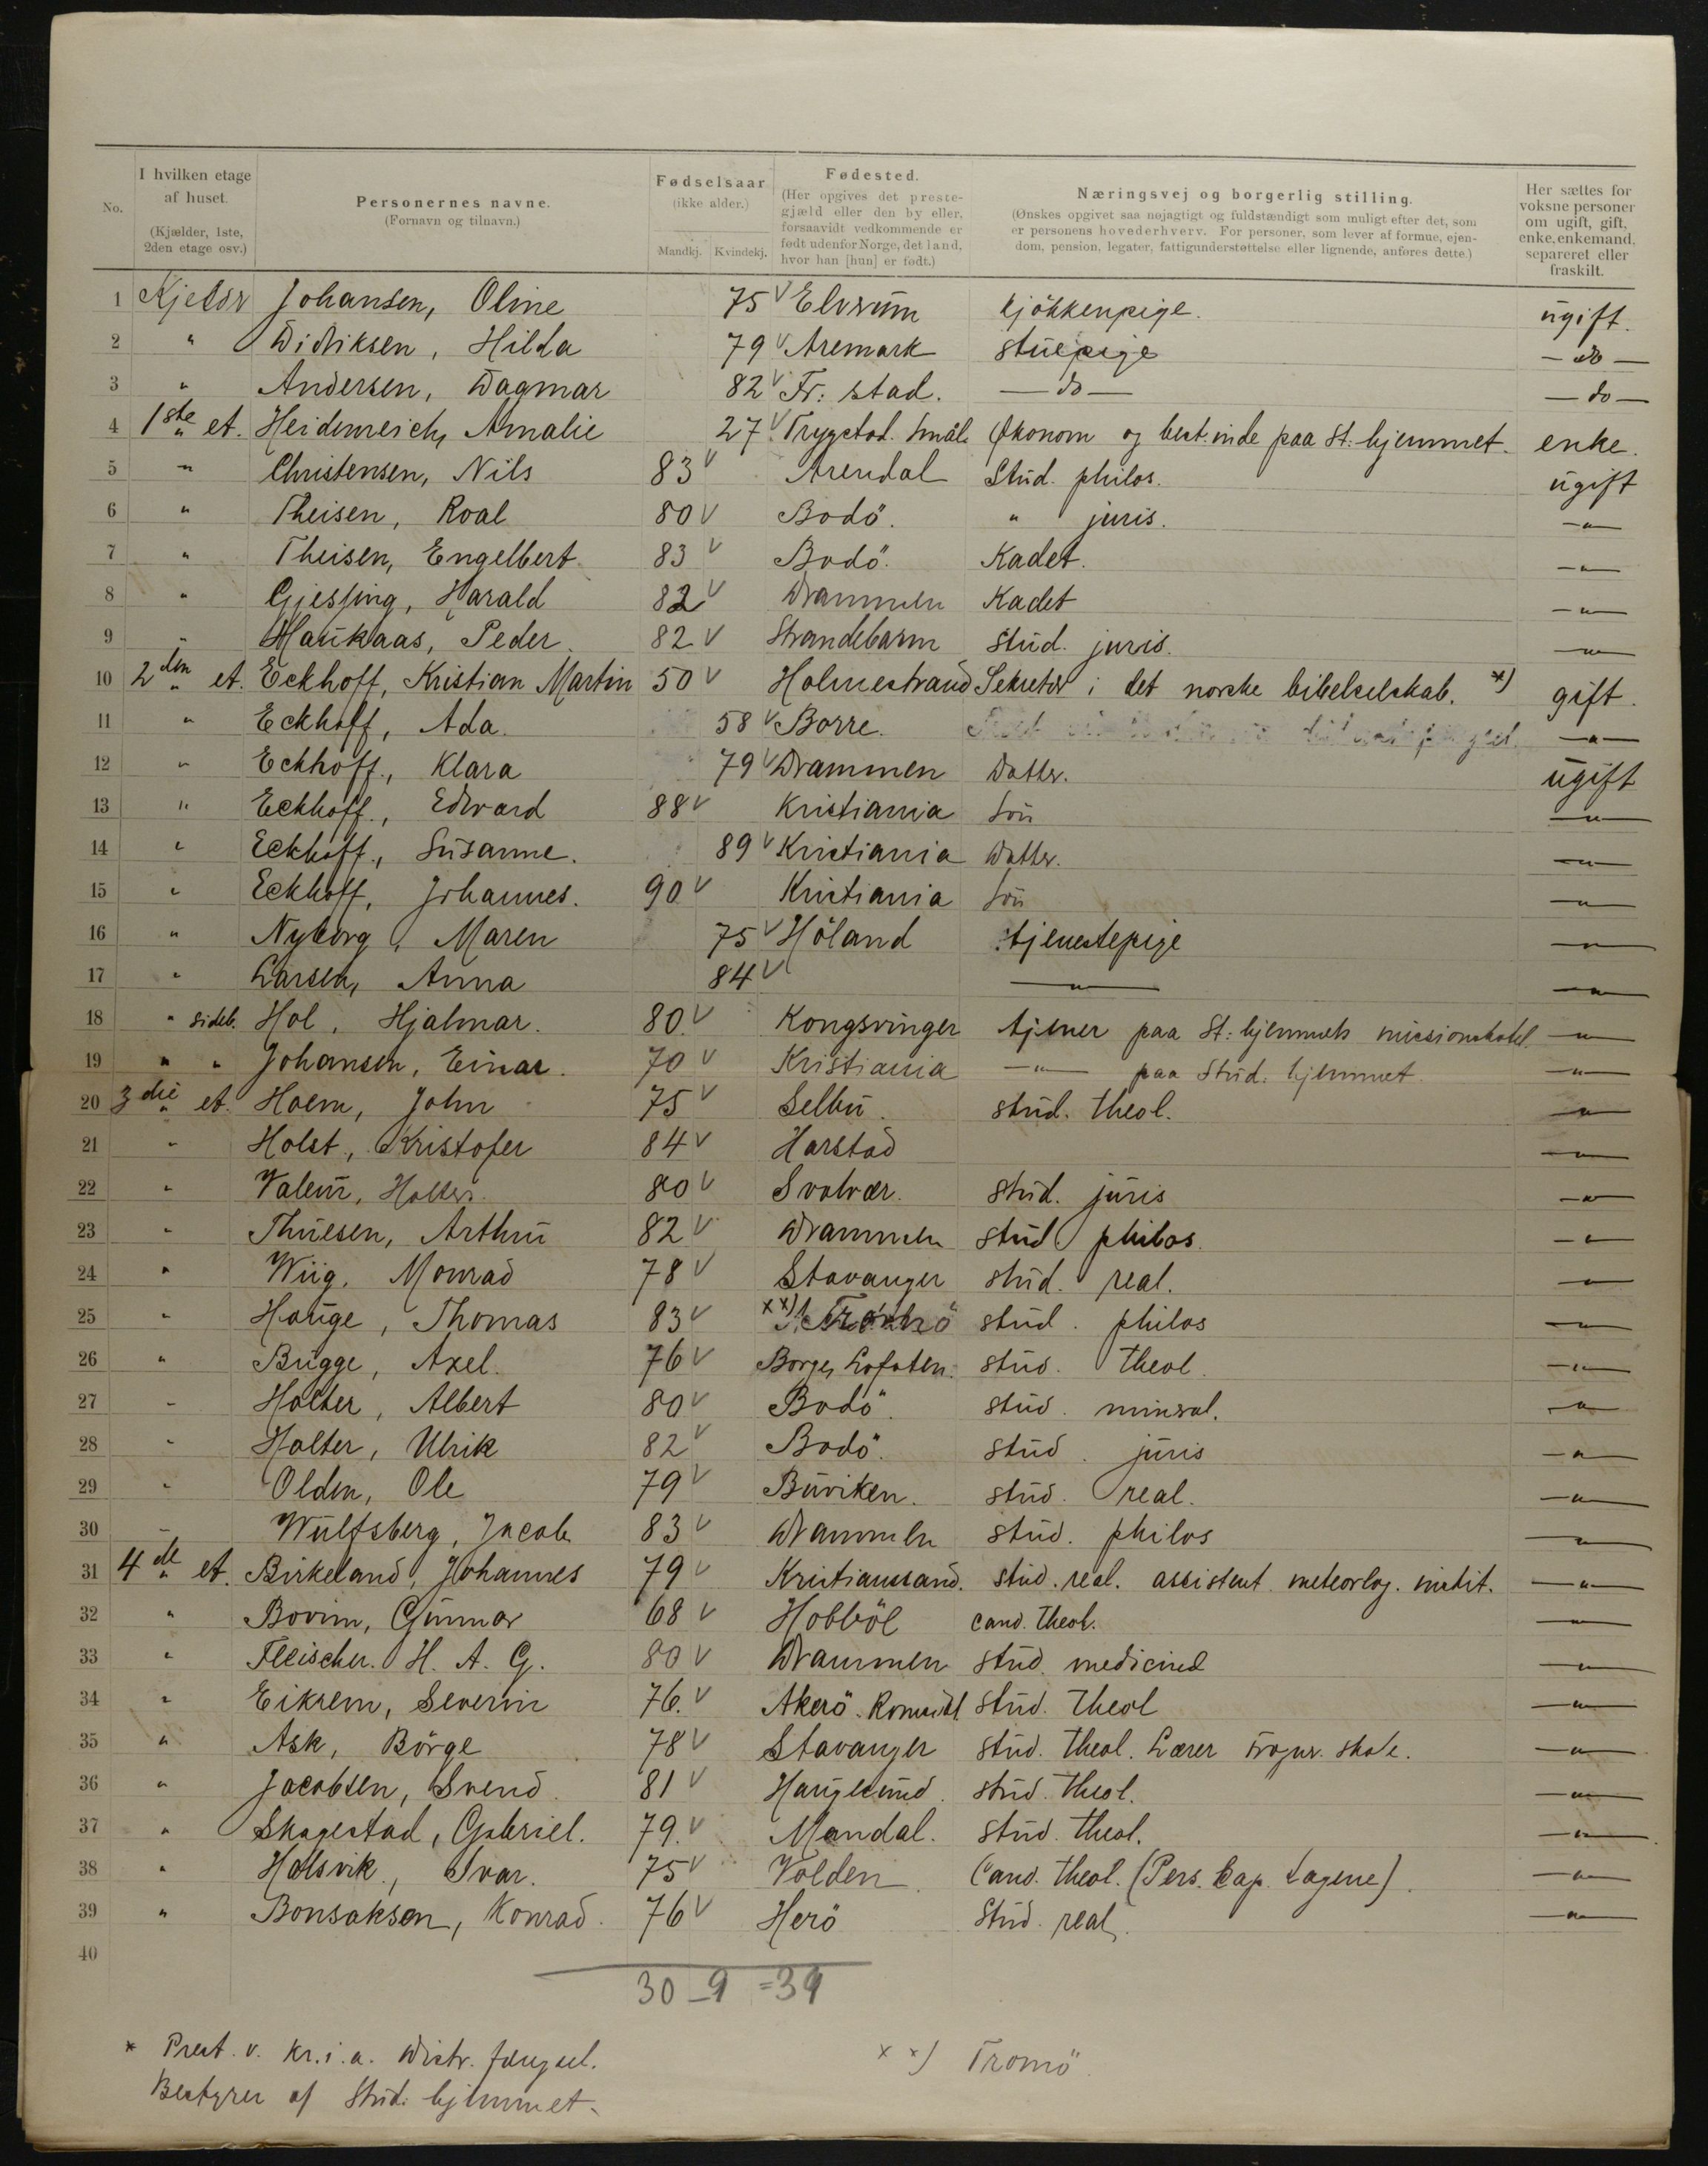 No.
I hvilken etage af huset. (Kjælder, 1ste, 2den etage osv.)
Personernes navne. (Fornavn og tilnavn.)
Fødselsaar (ikke alder.) Mandkj. Kvindekj.
Fødested. (Her opgives det prestegjæld eller den by eller, forsaavidt vedkommende er født udenfor Norge, det land, hvor han [hun] er født.)
Næringsvej og borgerlig stilling. (Ønskes opgivet saa nøjagtigt og fuldstændigt som muligt efter det, som er personens hovederhverv. For personer, som lever af formue, ejendom, pension, legater, fattigunderstøttelse eller lignende, anføres dette.)
Her sættes for voksne personer om ugift, gift, enke, enkemand, separeret eller fraskilt.
1 Kjelder Johansen, Oline 75 Elverum kjökkenpige. ugift.
2 " Didriksen, Hilda 79 Aremark stuepige — do —
3 " Andersen, Dagmar 82 Fr: stad. — do — — do —
4 1ste et. Heidenreich, Amalie 27 Trygstad. Smål. Økonom og best.inde paa St: hjemmet. enke.
5 " Christensen, Nils 83 Arendal Stud. philos. ugift
6 " Theisen, Roal 80 Bodö. " juris. — " —
7 " Theisen, Engelbert 83 Bodö. Kadet. — " —
8 " Gjessing, Harald 82 Drammen Kadet — " —
9 " Haukaas, Peder. 82 Strandebarm stud. juris. — " —
10 2den et. Eckhoff, Kristian Martin 50 Holmestrand Sekretær i det norske bibelselskab. *) gift.
11 " Eckhoff, Ada. 58 Borre. — " —
12 " Eckhoff, Klara 79 Drammen Datter. ugift
13 " Eckhoff, Edvard 88 Kristiania Sön — " —
14 " Eckhoff, Susanne. 89 Kristiania Datter. — " —
15 " Eckhoff, Johannes. 90 Kristiania Sön — " —
16 " Nyborg, Maren 75 Höland tjenestepige — " —
17 " Larsen, Anna 84 — " — — " —
18 " sideb. Hol, Hjalmar. 80. Kongsvinger tjener paa St: hjemmets missionshotel — " —
19 " " Johansen, Einar. 70 Kristiania — " — paa Stud. hjemmet. — " —
20 3die et. Hoem, John 75 Selbu. stud. theol. — " —
21 " Holst, Kristofer 84 Harstad — " —
22 " Valeur, 80 Svolvær. stud. juris — " —
23 " Thuesen, Arthur 82 Drammen stud philos. — " —
24 " Wiig, Monrad 78 Stavanger stud. real. — " —
25 " Hauge, Thomas 83 **) stud. philos — " —
26 " Bugge, Axel. 76 Borge, Lofoten. stud. theol. — " —
27 " Holter, Albert 80 Bodö. stud. mineral. — " —
28 " Holter, Ulrik 82 Bodö. stud. juris — " —
29 " Olden, Ole 79 Buviken. stud. real. — " —
30 " Wulfsberg, Jacob 83 Drammen stud. philos — " —
31 4de et. Birkeland, Johannes 79 Kristianssand. stud. real. assistent meteorlog. instit. — " —
32 " Bovim, Gunnar 68 Hobböl cand. theol. — " —
33 " Fleischer. H. A. G. 80 Drammen stud. medicine — " —
34 " Eikrem, Severin 76. Akerö. Romsdal stud. theol — " —
35 " Ask, Börge 78 Stavanger stud. theol. Lærer skole. — " —
36 " Jacobsen, Svend. 81 Haugesund. stud. theol. — " —
37 " Skagestad, Gabriel. 79. Mandal. stud. theol. — " —
38 " Halsvik, Ivar. 75 Volden. Cand. theol. (Pers. Cap. ) — " —
39 " Bonsaksen, Konrad. 76 Herö Stud. real. — " —
40
30 - 9 = 39
* Prest. v. Kr.i.a. Distr. fængsel.
Bestyrer af Stud. hjemmet.
**) Tromö